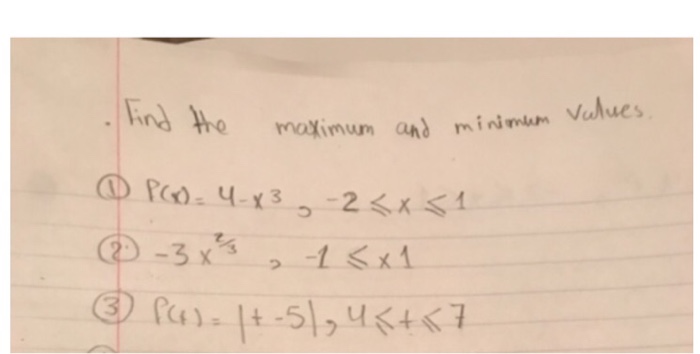 . Find the maximum and minimum values.
① P(x) = 4-x³, -2 ⩽ x ⩽ 1
② -3x^{2/3}, -1 ⩽ x 1
③ P(t) = |t-5|, 4 ⩽ t ⩽ 7